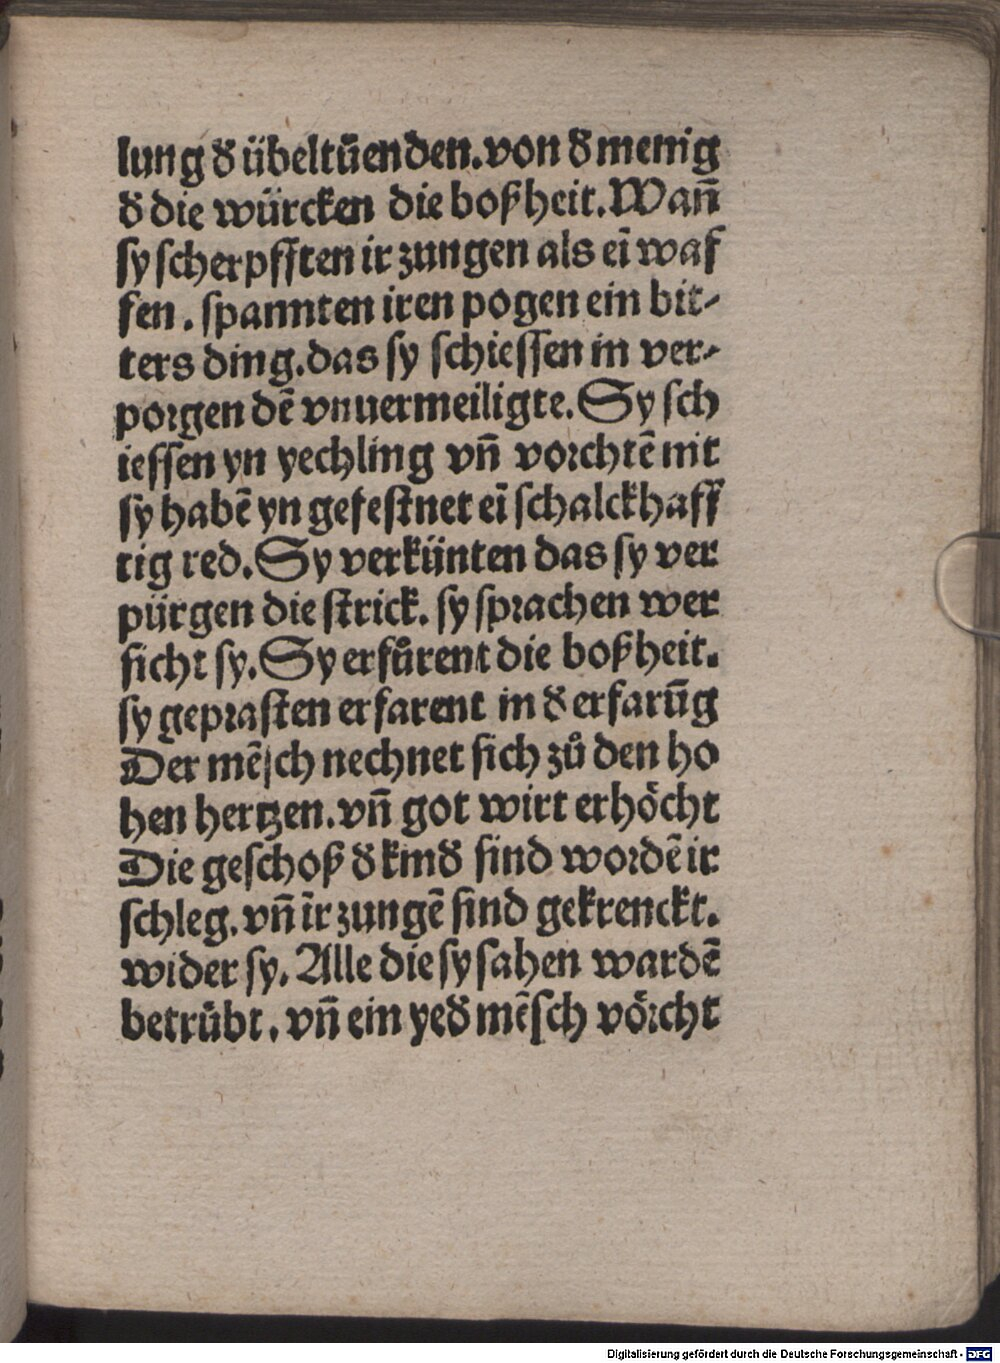 lung đ übeltūenden. von đ menig
đ die würcken die boßheit. Wañ
sy scherpfften ir zungen als eī waf
fen. spannten iren pogen ein bit-
ters ding. das sy schiessen in ver-
porgen dē vnuermeiligte. Sy sch
iessen yn yechling vñ vorchtē nit
sy habē yn gefestnet eī schalckhaff
tig red. Sy verkünten das sy ver
pürgen die strick. sy sprachen wer
sicht sy. Sy erfůrent die boßheit.
sy geprasten erfarent in đ erfarūg
Der mēsch nechnet sich zů den ho
hen hertzen. vñ got wirt erhöcht
Die geschoß đ kinđ sind wordē ir
schleg. vñ ir zungē sind gekrenckt.
wider sy. Alle die sy sahen wardē
betrůbt. vñ ein yeđ mēsch vörcht
Digitalisierung gefördert durch die Deutsche Forschungsgemeinschaft - DFG